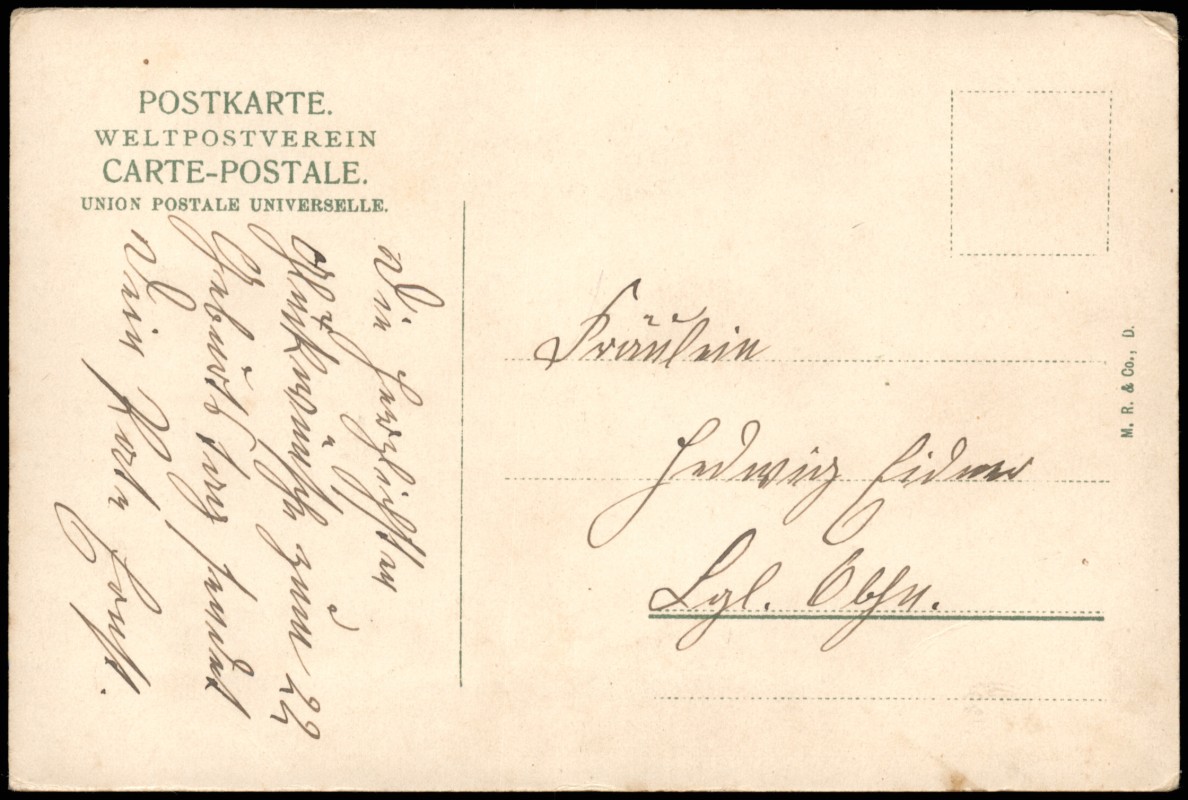 POSTKARTE.
WELTPOSTVEREIN
CARTE-POSTALE.
UNION POSTALE UNIVERSELLE.
Die herzlichsten
Glückwünsche zum 22
Geburtstag sendet
Dein
Fräulein
Hedwig
Lgl.
M. R. & Co., D.